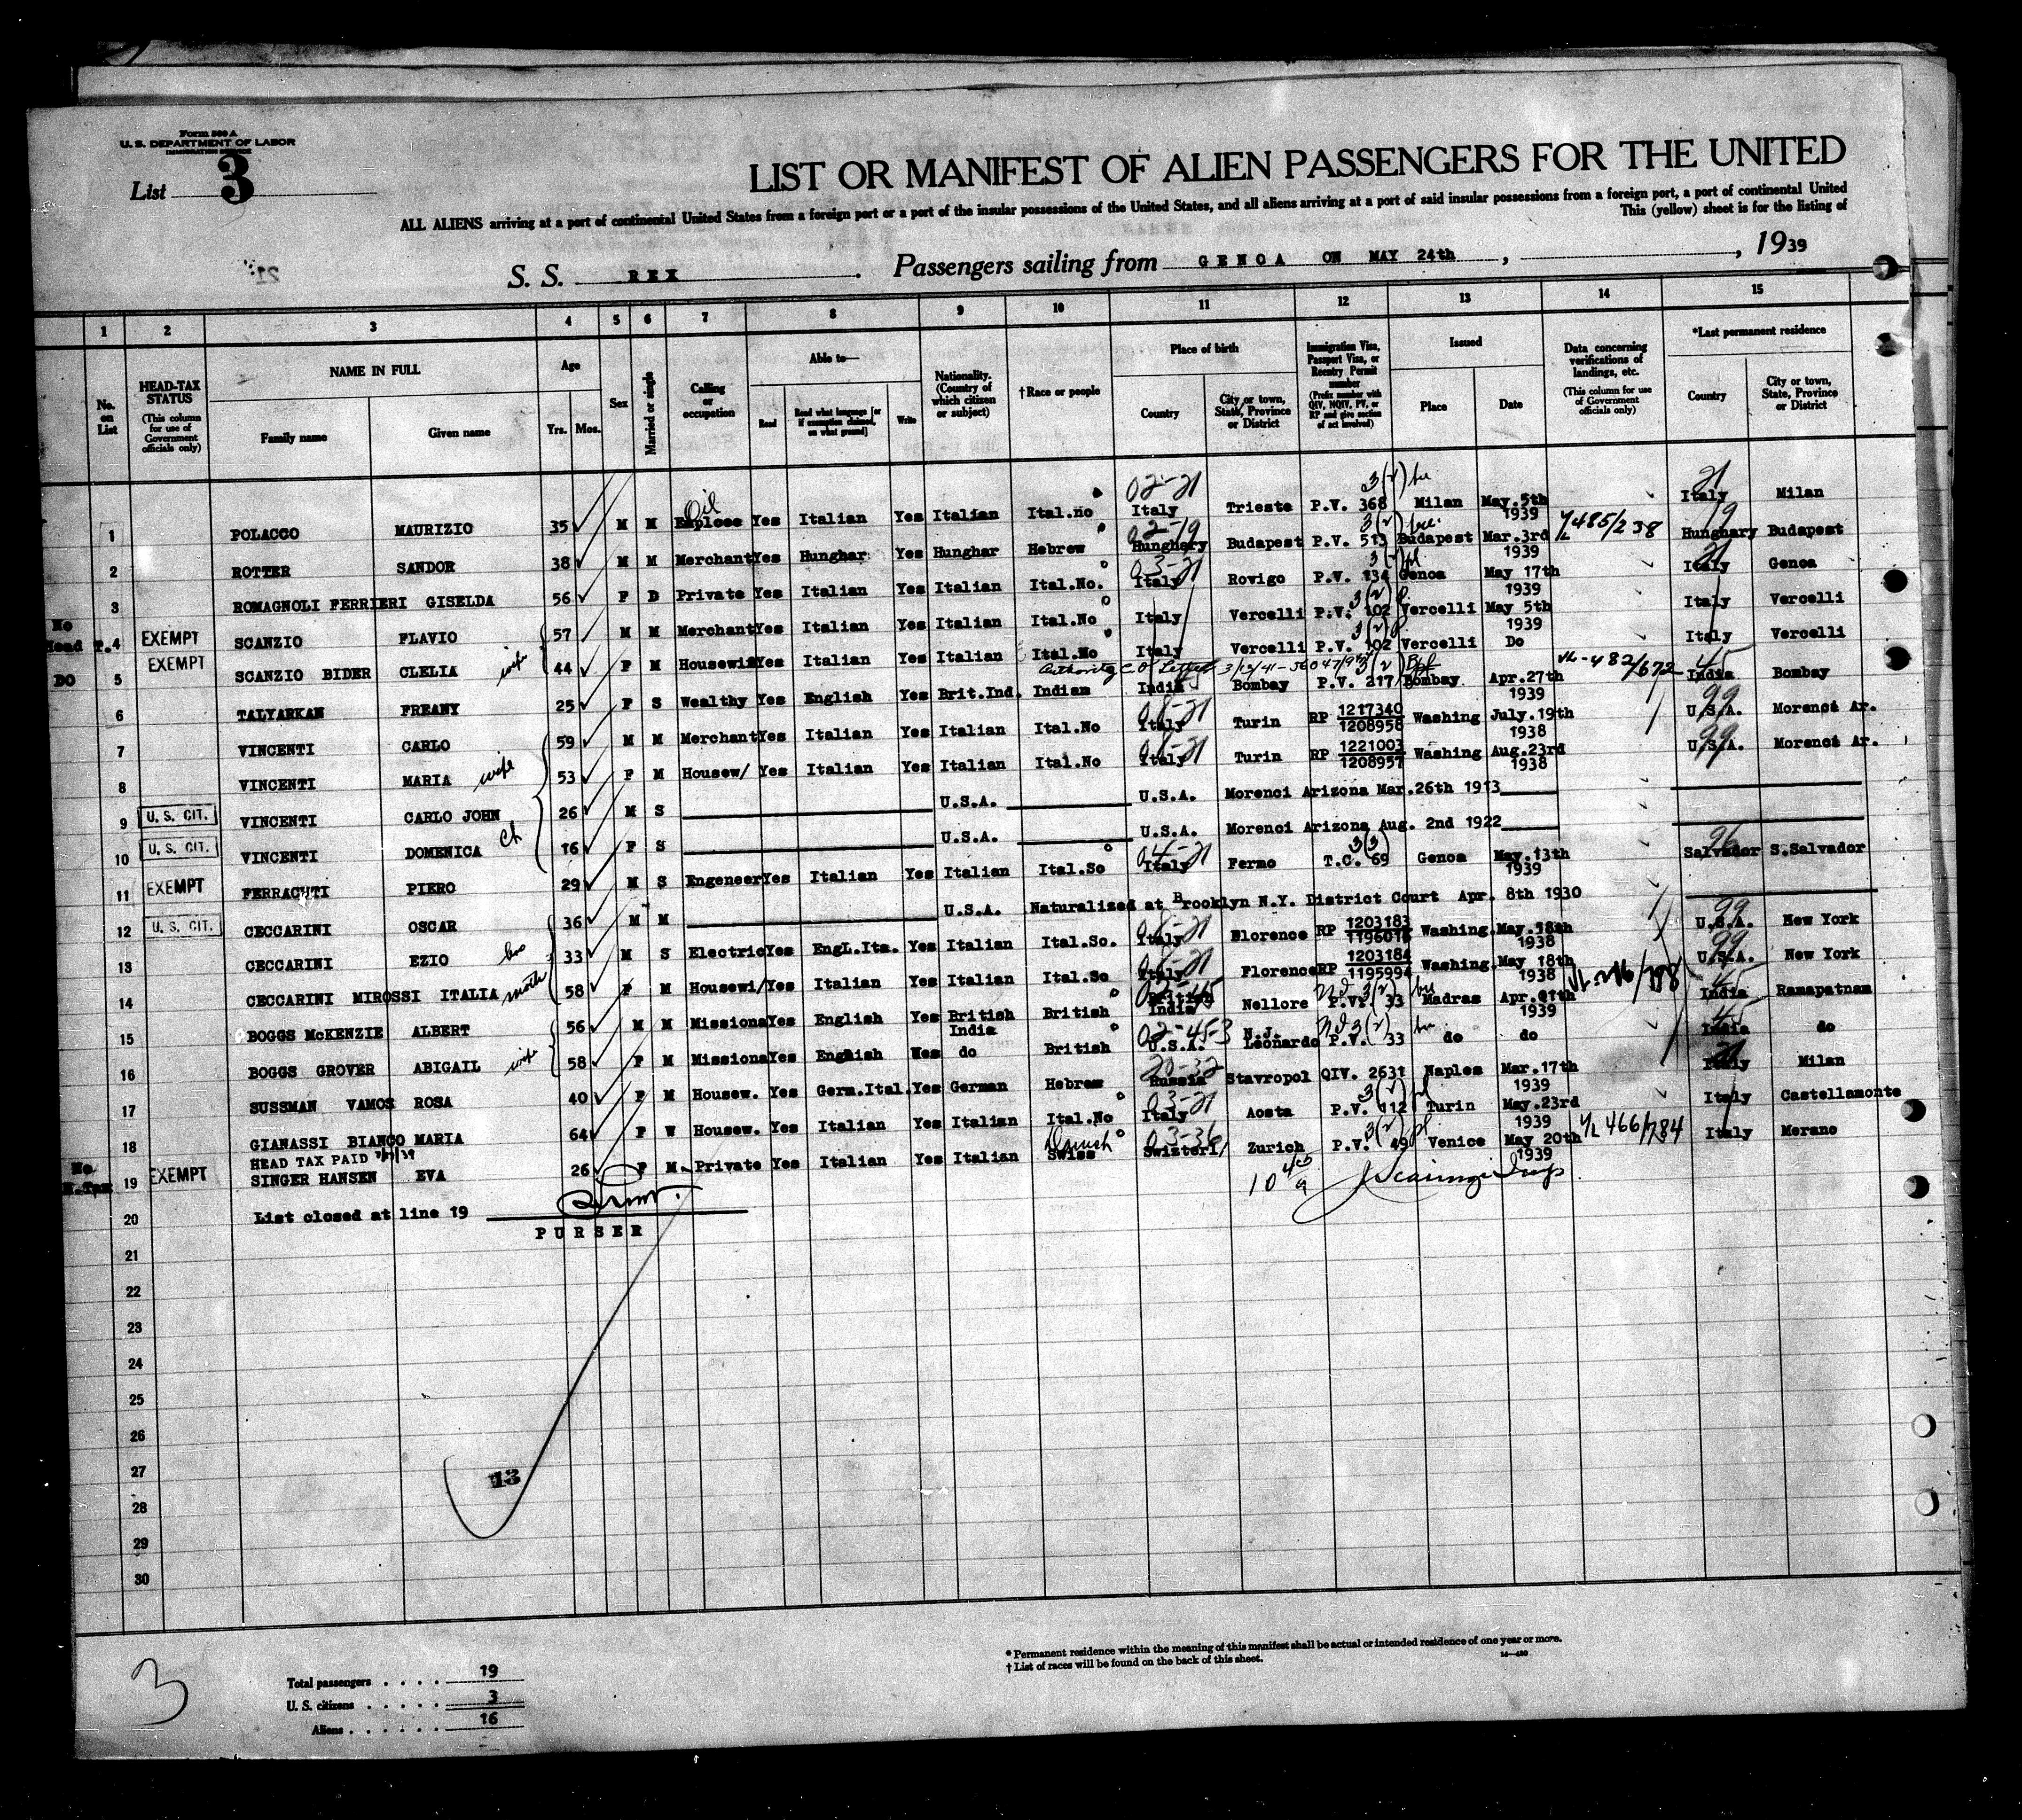 Form 500 A
U. S. DEPARTMENT OF LABOR
IMMIGRATION SERVICE
List 3
LIST OR MANIFEST OF ALIEN PASSENGERS FOR THE UNITED
ALL ALIENS arriving at a port of continental United States from a foreign port or a port of the insular possessions of the United States, and all aliens arriving at a port of said insular possessions from a foreign port, a port of continental United
This (yellow) sheet is for the listing of
S. S. REX . Passengers sailing from GENOA ON MAY 24th , , 1939
1 2 3 4 5 6 7 8 9 10 11 12 13 14 15
No. on List
HEAD-TAX STATUS (This column for use of Government officials only)
NAME IN FULL Family name Given name
Age Yrs. Mos.
Sex
Married or single
Calling or occupation
Able to— Read Read what language [or if exemption claimed, on what ground] Write
Nationality. (Country of which citizen or subject)
†Race or people
Place of birth Country City or town, State, Province or District
Immigration Visa, Passport Visa, or Reentry Permit number (Prefix number with QIV, NQIV, PV, or RP and give section of act involved)
Issued Place Date
Data concerning verifications of landings, etc. (This column for use of Government officials only)
*Last permanent residence Country City or town, State, Province or District
1 POLACCO MAURIZIO 35 M M Oil Emploee Yes Italian Yes Italian Ital.no 02-21 Italy Trieste P.V. 368 3(2) Milan May.5th 1939 21 Italy Milan
2 ROTTER SANDOR 38 M M Merchant Yes Hunghar Yes Hunghar Hebrew 02-19 Hunghary Budapest P.V. 513 3(2) Budapest Mar.3rd 1939 485/238 19 Hunghary Budapest
3 ROMAGNOLI FERRIERI GISELDA 56 F D Private Yes Italian Yes Italian Ital.No. 03-21 Italy Rovigo P.V. 134 3(2) Genoa May 17th 1939 21 Italy Genoa
No Head T. 4 EXEMPT SCANZIO FLAVIO 57 M M Merchant Yes Italian Yes Italian Ital.No Italy Vercelli P.V. 102 3(2) Vercelli May 5th 1939 Italy Vercelli
DO 5 EXEMPT SCANZIO BIDER CLELIA wife 44 F M Housewif Yes Italian Yes Italian Ital.No Italy Vercelli P.V. 102 3(2) Vercelli Do Italy Vercelli
6 TALYARKAN FREANY 25 F S Wealthy Yes English Yes Brit.Ind. Indian India Bombay P.V. 217 3(2) Bombay Apr.27th 1939 VL-482/672 45 India Bombay
7 VINCENTI CARLO 59 M M Merchant Yes Italian Yes Italian Ital.No Italy Turin RP 1217340 1208958 Washing July.19th 1938 99 U.S.A. Morenci Ar.
8 VINCENTI MARIA wife 53 F M Housew/ Yes Italian Yes Italian Ital.No Italy Turin RP 1221003 1208957 Washing Aug.23rd 1938 99 U.S.A. Morenci Ar.
9 U. S. CIT. VINCENTI CARLO JOHN 26 M S U.S.A. U.S.A. Morenci Arizona Mar.26th 1913
10 U. S. CIT. VINCENTI DOMENICA ch 16 F S U.S.A. U.S.A. Morenci Arizona Aug. 2nd 1922
11 EXEMPT FERRACUTI PIERO 29 M S Engeneer Yes Italian Yes Italian Ital.So 04-21 Italy Fermo T.C. 69 3(3) Genoa May.13th 1939 96 Salvador S.Salvador
12 U. S. CIT. CECCARINI OSCAR 36 M M U.S.A. Naturalized at Brooklyn N.Y. District Court Apr. 8th 1930
13 CECCARINI EZIO bro 33 M S Electric Yes Engl.Ita. Yes Italian Ital.So. Italy Florence RP 1203183 Washing. May.18th 1938 99 U.S.A. New York
14 CECCARINI MIROSSI ITALIA moth 58 F M Housewi/ Yes Italian Yes Italian Ital.So Italy Florence RP 1203184 1195994 Washing. May 18th 1938 99 U.S.A. New York
15 BOGGS McKENZIE ALBERT 56 M M Missiona Yes English Yes British India British British India Nellore P.V. 33 3(2) Madras Apr. 1939 45 India Ramapatnam
16 BOGGS GROVER ABIGAIL wife 58 F M Missiona Yes English Yes do British 02-45-3 U.S.A. N.J. Leonardo P.V. 33 3(2) do do 45 India do
17 SUSSMAN VAMOS ROSA 40 F M Housew. Yes Germ.Ital. Yes German Hebrew 20-32 Russia Stavropol QIV. 2631 Naples Mar.17th 1939 Italy Milan
18 GIANASSI BIANCO MARIA 64 F W Housew. Yes Italian Yes Italian Ital.No 03-21 Italy Aosta P.V. 112 3(2) Turin May.23rd 1939 Italy Castellamonte
HEAD TAX PAID
No H.Tax 19 EXEMPT SINGER HANSEN EVA 26 F M Private Yes Italian Yes Italian Swiss 03-36 Switzerl/ Zurich P.V. 49 3(2) Venice May 20th 1939 466/784 Italy Merano
20 List closed at line 19
PURSER
21
22
23
24
25
26
27
13
28
29
30
* Permanent residence within the meaning of this manifest shall be actual or intended residence of one year or more.
† List of races will be found on the back of this sheet.
3
Total passengers . . . . 19
U. S. citizens . . . . . 3
Aliens . . . . . . 16